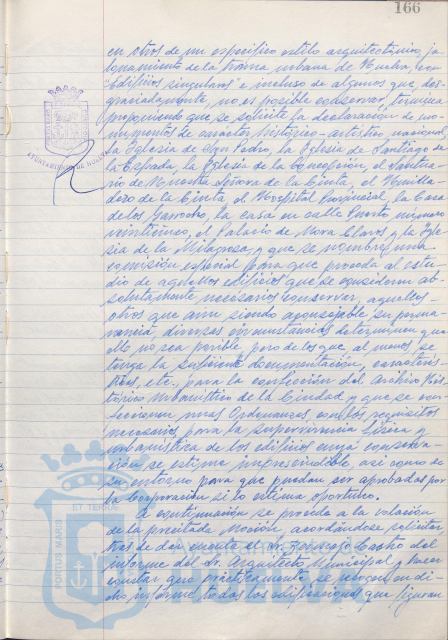 166
en otros de un específico estilo arquitectónico, ja
lonamiento de la trama urbana de Huelva, con
"Edificios singulares" e incluso de algunos que, des-
graciadamente, no es posible conservar, termina
proponiendo que se solicite la declaración de mo-
numentos de carácter histórico-artístico nacional
la Iglesia de San Pedro, la Iglesia de Santiago de
la Espada, la Iglesia de la Concepción, el Santua-
rio de Nuestra Señora de la Cinta, el Humilla-
dero de la Cinta, el Hospital Provincial, la Casa
de los Garrocho, la casa en calle Puerto número
veinticinco, el Palacio de Mora Claros y la Igle-
sia de la Milagrosa y que se nombre una
comisión especial para que proceda al estu-
dio de aquellos edificios que se consideren ab-
solutamente necesarios conservar, aquellos
otros que aun siendo aconsejable su perma-
nencia, diversas circunstancias determinen que
ello no sea posible pero de los que al menos se
tenga la suficiente documentación, caracterís-
ticas, etc., para la confección del Archivo His
tórico Urbanístico de la Ciudad y que se con-
feccionen unas Ordenanzas con los requisitos
necesarios para la supervivencia física y
urbanística de los edificios cuya conserva-
ción se estime imprescindible, así como de
su entorno para que puedan ser aprobadas por
la Corporación si lo estima oportuno.
A continuación se procede a la votación
de la precitada Moción, acordándose solicitar
tras de dar cuenta el Sr. Castro del
informe del Sr. Arquitecto Municipal y hacer
constar que prácticamente se recogen en di-
cho informe todas las edificaciones que figuran
AYUNTAMIENTO DE HUELVA
PORTUS MARIS
ET TERRAE